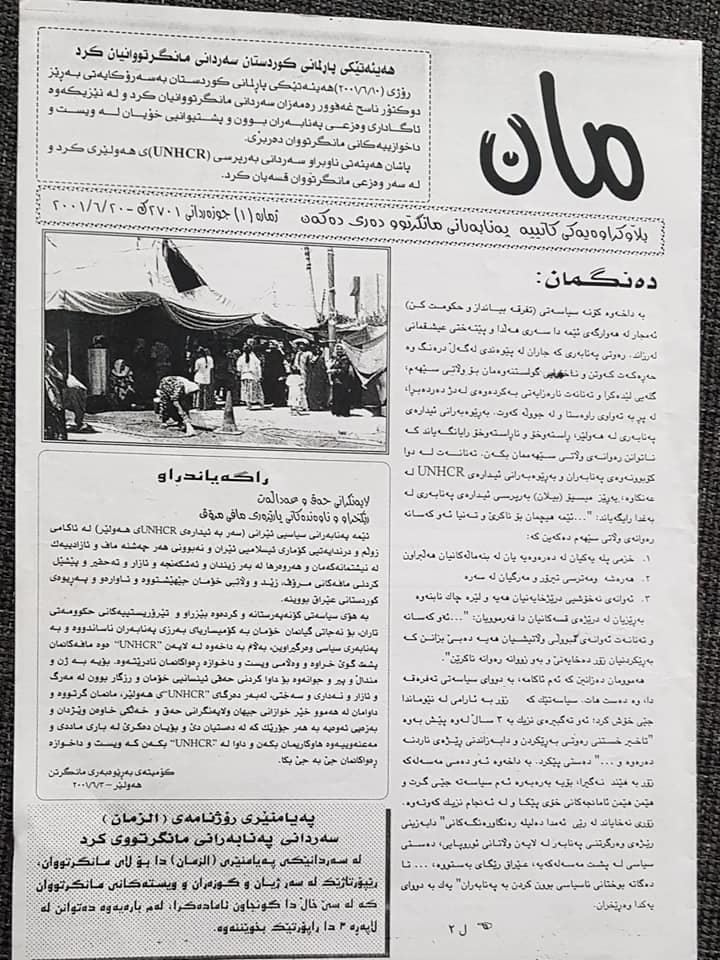 هەیئەتێکی پارلمانی کوردستان سەردانی مانگرتووانیان کرد
رۆژی (٢٠٠١/٦/١٠)هەیئەتێکی پارلمانی کوردستان بەسەرۆکایەتی بەڕێز
دوکتۆر ناسح غەفوور رەمەزان سەردانی مانگرتووانیان کرد و لە نێزیکەوە
ئاگاداری وەزعی پەنابەران بوون و پشتیوانیی خۆیان لە ویست و
داخوازییەکانی مانگرتووان دەربڕی.
پاشان هەیئەتی ناوبراو سەردانی بەرپرسی (UNHCR)ی هەولێری کرد و
لە سەر وەزعی مانگرتووان قسەیان کرد.
مان
بلاوکراوەیەکی کاتییە پەنابەرانی مانگرتوو دەری دەکەن ژمارە (١) جۆزەردانی ٢٧٠١ک -٢٠٠١/٦/٢٠
دەنگمان:
بە داخەوە کۆنە سیاسەتی (تفرقە بیانداز و حکومت کن)
ئەمجار لە هەوارگەی ئێمە دا سەری هەڵدا و پێتەختی عیشقمانی
لەرزاند. رەوتی پەنابەری کە جاران لە پێوەندی لەگەڵ درەنگ وە
حەڕەکەت کەوتن و گواستنەوەمان بۆ ولاتی سێهەم،
گلەیی لێدەکرا و تەنانەت نارەزایەتی بەکردەوەی لەدژ دەردەبڕا،
لە پڕ بە تەواوی راوەستا و لە جوولە کەوت. بەڕێوەبەرانی ئیدارەی
پەنابەری لە هەولێر، ڕاستەوخۆ و ناڕاستەوخۆ رایانگەیاند کە
ناتوانن رەوانەی ولاتی سێهەممان بکەن. تەنانەت لە دوا
کۆبوونەوەی پەنابەران و بەڕێوەبەرانی ئیدارەی UNHCR لە
عەنکاوە، بەڕێز میسێۆ (بیلان) بەرپرسی ئیدارەی پەنابەری لە
بەغدا رایگەیاند: "...ئێمە هیچمان بۆ ناکرێ و تەنیا ئەو کەسانە
رەوانەی ولاتی سێهەم دەکەین کە:
١. خزمی پلە یەکیان لە دەرەوەیە یان لە بنەماڵەکانیان هەڵبراون
٢. هەرەشە ومەترسی تیرۆر و مەرگیان لە سەرە
٣. ئەوانەی نەخۆشیی درێژخایەنیان هەیە و لێرە چاک نابنەوە
بەڕێزیان لە درێژەی قسەکانیان دا فەرموویان: "...ئەو کەسانە
و تەنانەت ئەوانەی قبوولی ولاتیشیان هەیە دەبێ بزانن کە
بەڕێکردنیان زۆر دەخایەنێ و بەو زووانە رەوانە ناکرێن".
هەموومان دەزانین کە ئەم ئاکامە، بە دووای سیاسەتی تەفرەقە
دا، وە دەست هات. سیاسەتێک کە زۆر بە ئارامی لە نێوماندا
جێی خۆش کرد؛ ئەو تەگبیرەی نزیک بە ٣ ساڵ لەوە پێش بەوە
"تاخیر خستنی رەوتی بەڕێکردن و دابەزاندنی رێژەی ناردنە
دەرەوە و ..." دەستی پێکرد. بە داخەوە ئەو دەمی مەسەلەکە
زۆر بە هێند نەگیرا، بۆیە بەرەبەرە ئەم سیاسەتە جێی گرت و
هێمن هێمن ئامادەکانی خۆی پێکا و لە ئەنجام نزیک کەوتەوە.
زۆری نەخایاند لە رێی ئەمدا دەلیلە رەنگاورەنگەکانی" دابەزینی
رێژەی وەرگرتنی پەنابەر لە لایەن ولاتانی ئوروپایی، دەستی
سیاسی لە پشت مەسەلەکەیە، عێراق رێگای بەستووە، ... تا
دەگاتە بوختانی ناسیاسی بوون کردن بە پەنابەران" یەک بە دووای
یەکدا وەڕێخران.
ل ٢
راگەیاندراو
لایەنگرانی حەق و عەداڵەت
رێکخراو و ناوەندەکانی پارێزەری مافی مرۆڤ
ئێمە پەنابەرانی سیاسیی ئێرانی (سەر بە ئیدارەی UNHCRی هەولێر) لە ئاکامی
زوڵم و دڕندایەتیی کۆماری ئیسلامیی ئێران و نەبوونی هەر چەشنە ماف و ئازادییەک
لە نیشتمانەکەمان و هەروەها لە بەر زیندان و ئەشکەنجە و ئازار و تەحقیر و پێشێل
کردنی مافەکانی مرۆڤ، زێد و ولاتی خۆمان جێهێشتووە و ئاوارەو و پەڕیوەی
کوردستانی عێراق بووینە.
بە هۆی سیاسەتی کۆنەپەرستانە و کردەوە بێزراو و تێرۆریستییەکانی حکوومەتی
تاران، بۆ نەجاتی گیانمان خۆمان بە کۆمیساریای بەرزی پەنابەران ناساندووە و بە
پەنابەری سیاسی وەرگیراوین، بەڵام بە داخەوە لە لایەن "UNHCR" ەوە مافەکانمان
پشت گوێ خراوە و وەلامی ویست و داخوازە ڕەواکانمان نادرێتەوە. بۆیە بە ژن و
منداڵ و پیر و جوانەوە بۆ داوا کردنی حەقی ئینسانیی خۆمان و رزگار بوون لە مەرگ
و ئازار و نەداری و سەختی، لەبەر دەرگای "UNHCR"ی هەولێر، مانمان گرتووە و
داوامان لە هەموو خێر خوازانی جیهان ولایەنگرانی حەق و خەلکی خاوەن ویژدان و
بەزەیی ئەوەیە بە هەر جۆرێک کە لە دەستیان دێ و بۆیان دەکرێ لە باری ماددی و
مەعنەوییەوە هاوکاریمان بکەن و داوا لە "UNHCR" بکەن کە ویست و داخوازە
ڕەواکانمان جێ بە جێ بکا.
کۆمیتەی بەڕێوەبەری مانگرتن
هەولێر -٢٠٠١/٦/٣
پەیامنێری رۆژنامەی ( الزمان )
سەردانی پەنابەرانی مانگرتووی کرد
لە سەردانێکی پەیامنێری (الزمان) دا بۆ لای مانگرتووان،
رێپۆرتاژێک لە سەر ژیان و گوزەران و ویستەکانی مانگرتووان
کە لە سێ خاڵ دا گونجاون ئامادەکرا، لەم بارەیەوە دەتوانن لە
لاپەرە ٣ دا راپۆرتێک بخوێننەوە.